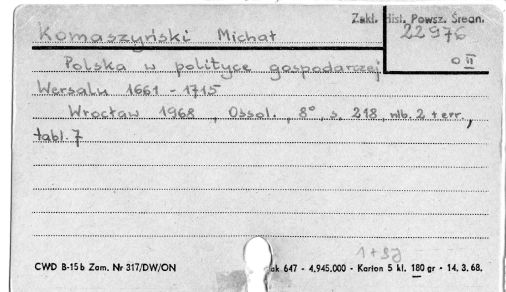 Zakł. Hist. Powsz. Średn.
Komaszyński Michał
22976
o II
Polska w polityce gospodarczej
Wersalu 1661 - 1715
Wrocław 1968, Ossol., 8°, s. 218, nlb. 2 + err.,
tabl. 7
1+9J
CWD B-15b Zam. Nr 317/DW/ON
ak 647 - 4.945.000 - Karton 5 kl. 180 gr - 14. 3. 68.